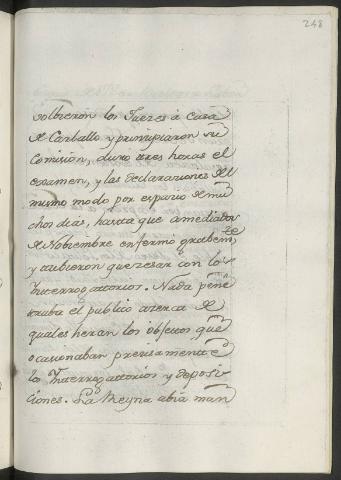 248
volbieron los Jueces à casa
de Carballo y principiaron su
Comision, duro tres horas el
examen, y las declaraciones del
mismo modo por espacio de mu
chos dias, hasta que a mediados
de Nobiembre enfermó grabem.te
y tubieron que zesar con los
Interrogattorios. Nada pene
traba el publico azerca de
quales heran los obgettos que
ocasionaban precisamente
los Interrogattorios y deposi
ciones. La Reyna abia man